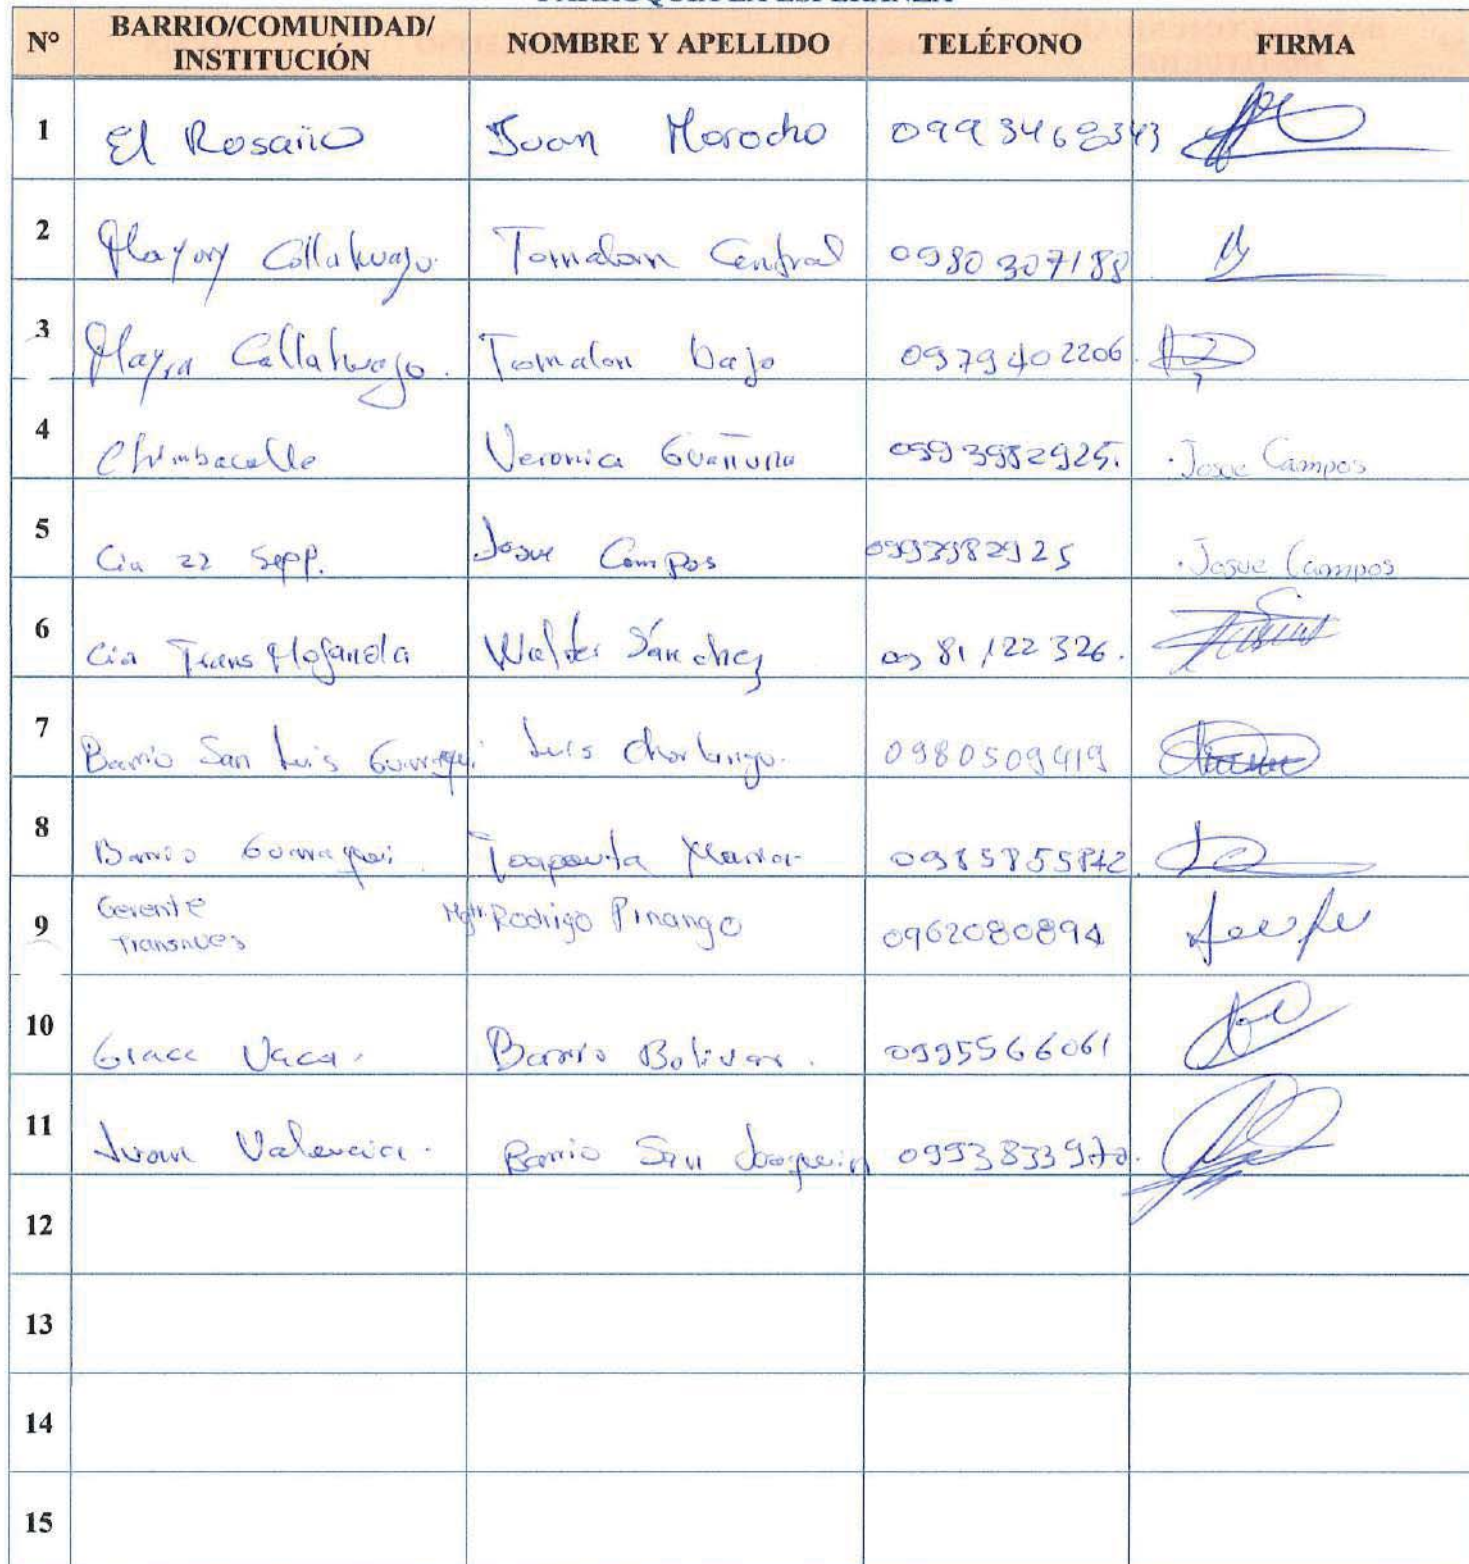 N° BARRIO/COMUNIDAD/ INSTITUCIÓN NOMBRE Y APELLIDO TELÉFONO FIRMA
1 El Rosario Juan Morocho 0993468343
2 Mayory Collahuazo. Tomalon Central 0980307188
3 Mayra Collahuazo. Tomalon bajo 0979402206.
4 Chimbacalle Veronica Guañuna 0993982925. Josue Campos
5 Cia 22 Sepp. Josue Campos 0993982925 Josue Campos
6 Cia Trans Mojanda Walter Sánchez 0981122326.
7 Barrio San Luis Guaraqui Luis 0980509419
8 Barrio Guaraqui Toapanta Maria 0985855842
9 Gerente Mgtr. Rodrigo Pinango 0962080894
Transnues
10 Grace Vaca. Barrio Bolivar. 0995566061
11 Juan Valencia. Barrio San Joaquin 0993833970.
12
13
14
15